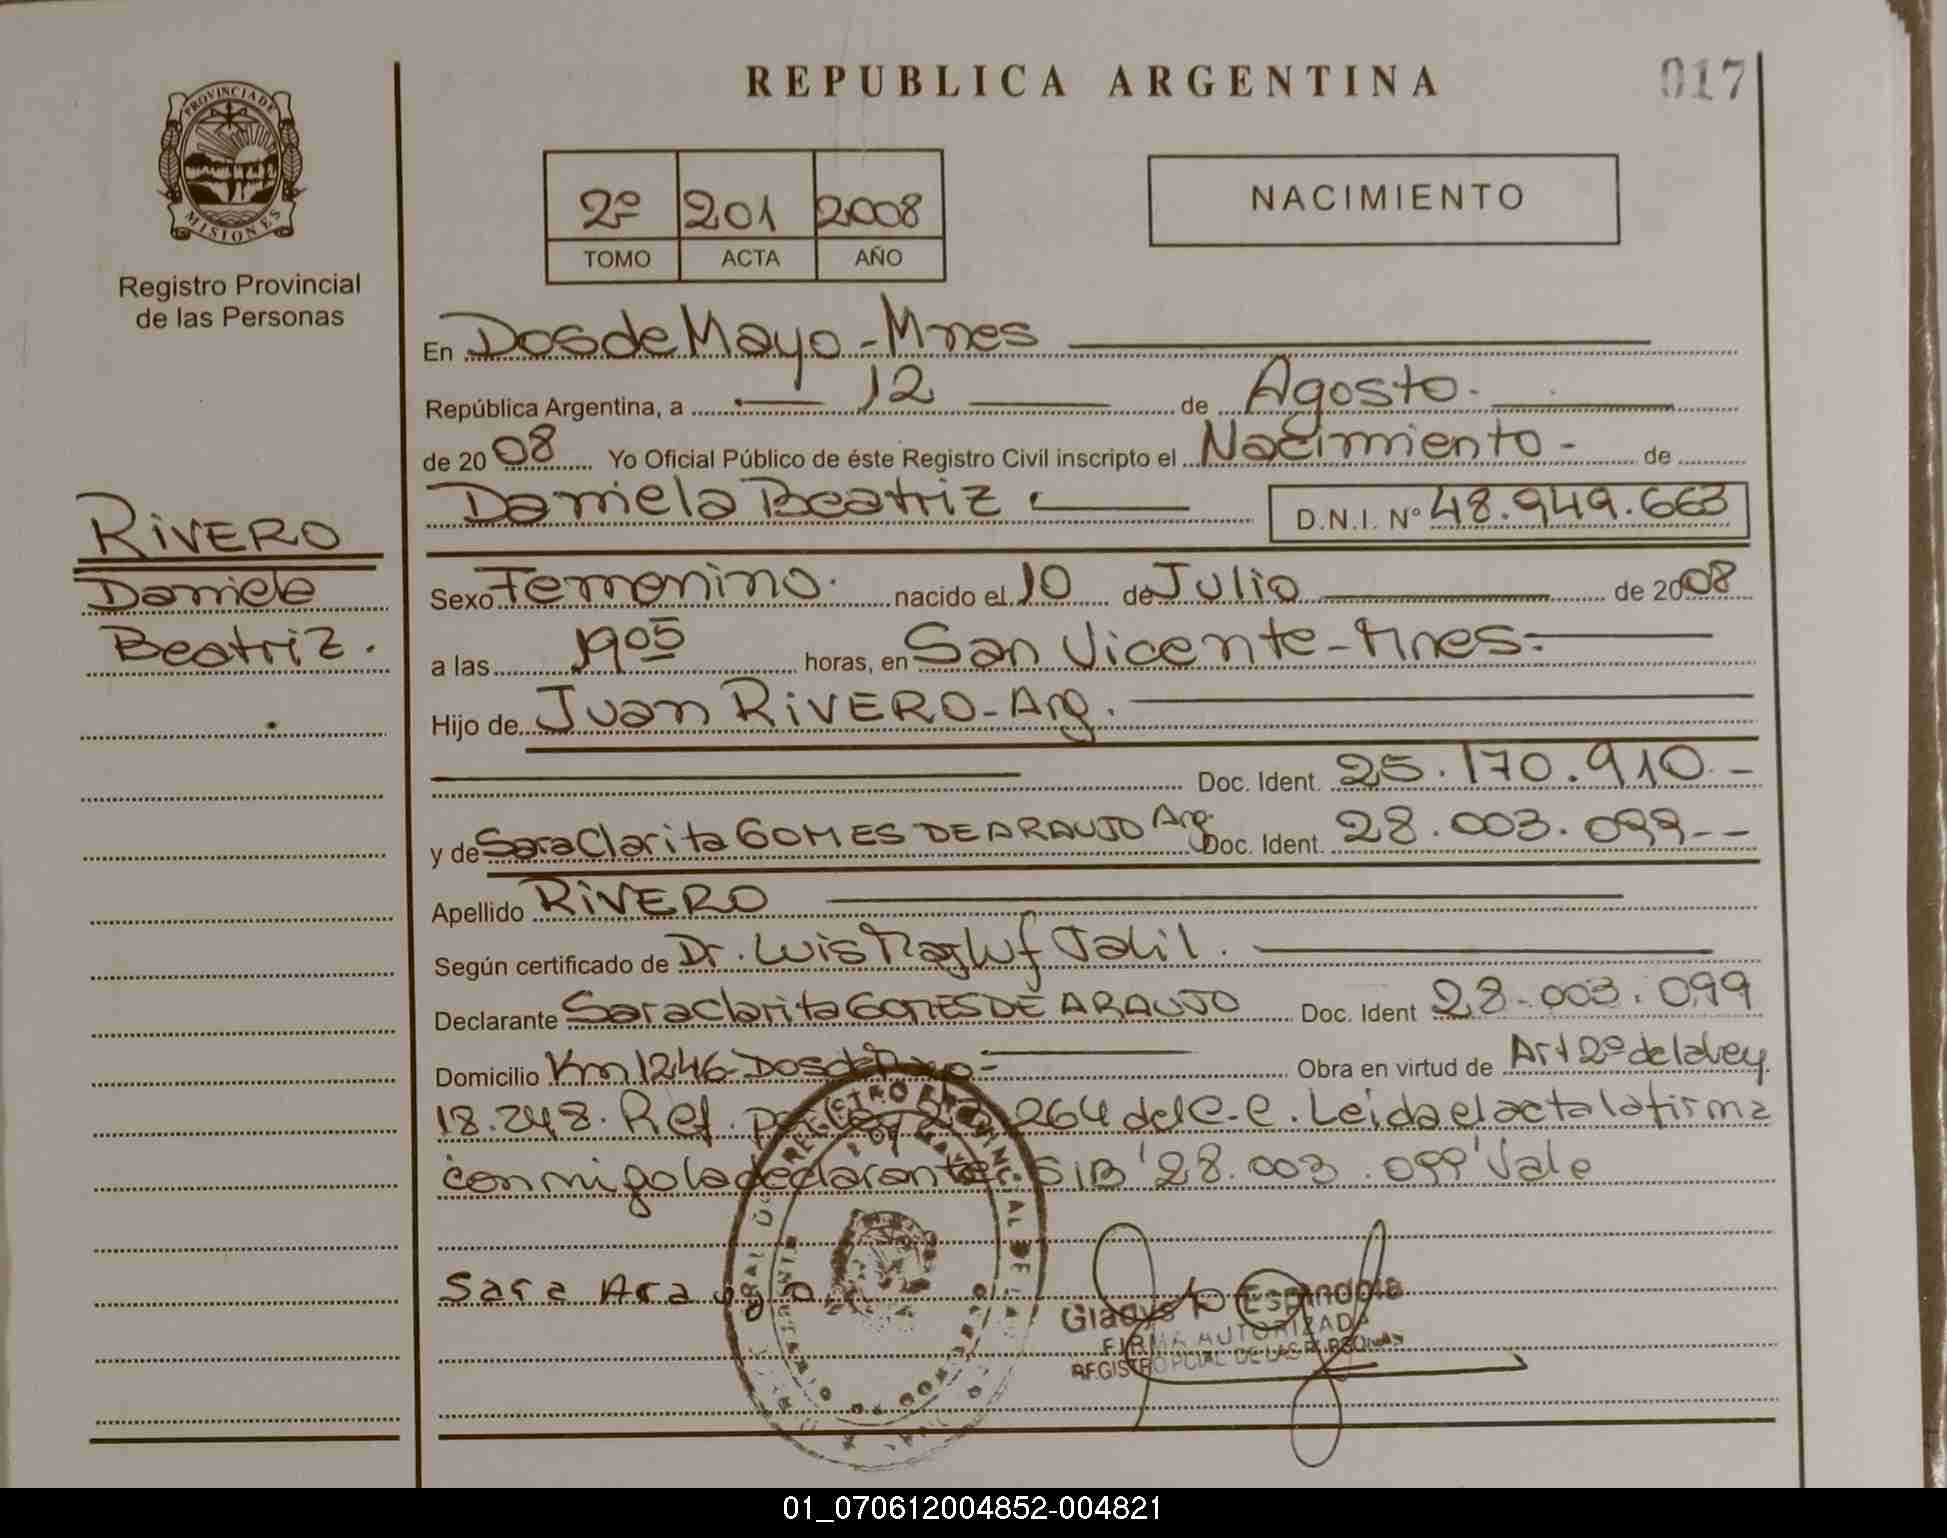 REPUBLICA ARGENTINA
017
PROVINCIA DE
MISIONES
Registro Provincial
de las Personas
2º 201 2008
TOMO ACTA AÑO
NACIMIENTO
En Dos de Mayo - Mnes
República Argentina, a 12 de Agosto.
de 2008 Yo Oficial Público de éste Registro Civil inscripto el Nacimiento - de
Daniela Beatriz D.N.I. Nº 48.949.663
RiVERO
Daniela
Beatriz.
Sexo Femenino. nacido el 10 de Julio de 2008
a las 1905 horas, en San Vicente - Mnes.
Hijo de Juan RiVERO - Arg.
Doc. Ident. 25.170.910. -
y de Sara Clarita GOMES DE ARAUJO Arg. Doc. Ident. 28.003.099 - -
Apellido RiVERO
Según certificado de Dr. Luis Magluf Jalil.
Declarante Sara Clarita GOMES DE ARAUJO Doc. Ident 28.003.099
Domicilio Km 1246 - Dos de Mayo - Obra en virtud de Art 2º de la Ley
18.248. Ref. por Ley 264 del C.C. Leida el acta la firma
conmigo la declarante. S/B '28.003.099' Vale
Sara Araujo
Gladys Espindola
FIRMA AUTORIZADA
REGISTRO PCIAL DE LAS PERSONAS
01_070612004852-004821